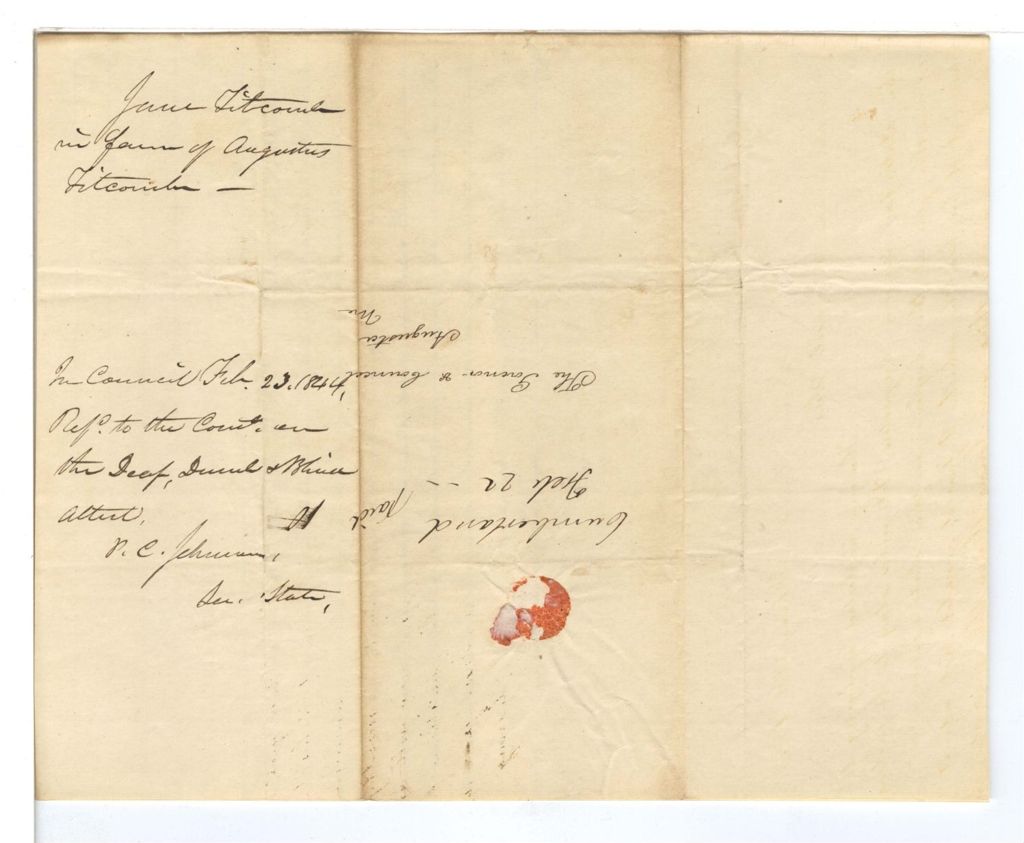 Jane Titcomb
in favor of Augustus
Titcomb —
In Council Feb. 23. 1844,
Refd. to the Comt. on
the Deaf, Dumb & Blind
Attest,
P. C. Johnson,
Sec. State,
Cumberland
Feb 22 —
Paid
10
The Governor & Council
Augusta
Me